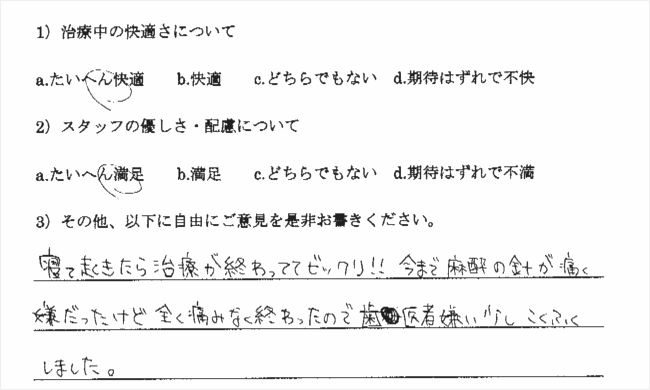 1）治療中の快適さについて
a.たいへん快適　b.快適　c.どちらでもない　d.期待はずれで不快
2）スタッフの優しさ・配慮について
a.たいへん満足　b.満足　c.どちらでもない　d.期待はずれで不満
3）その他、以下に自由にご意見を是非お書きください。
寝て起きたら治療が終わっててビックリ!! 今まで麻酔の針が痛く
嫌だったけど 全く痛みなく終わったので 歯医者嫌い少し こくふく
しました。